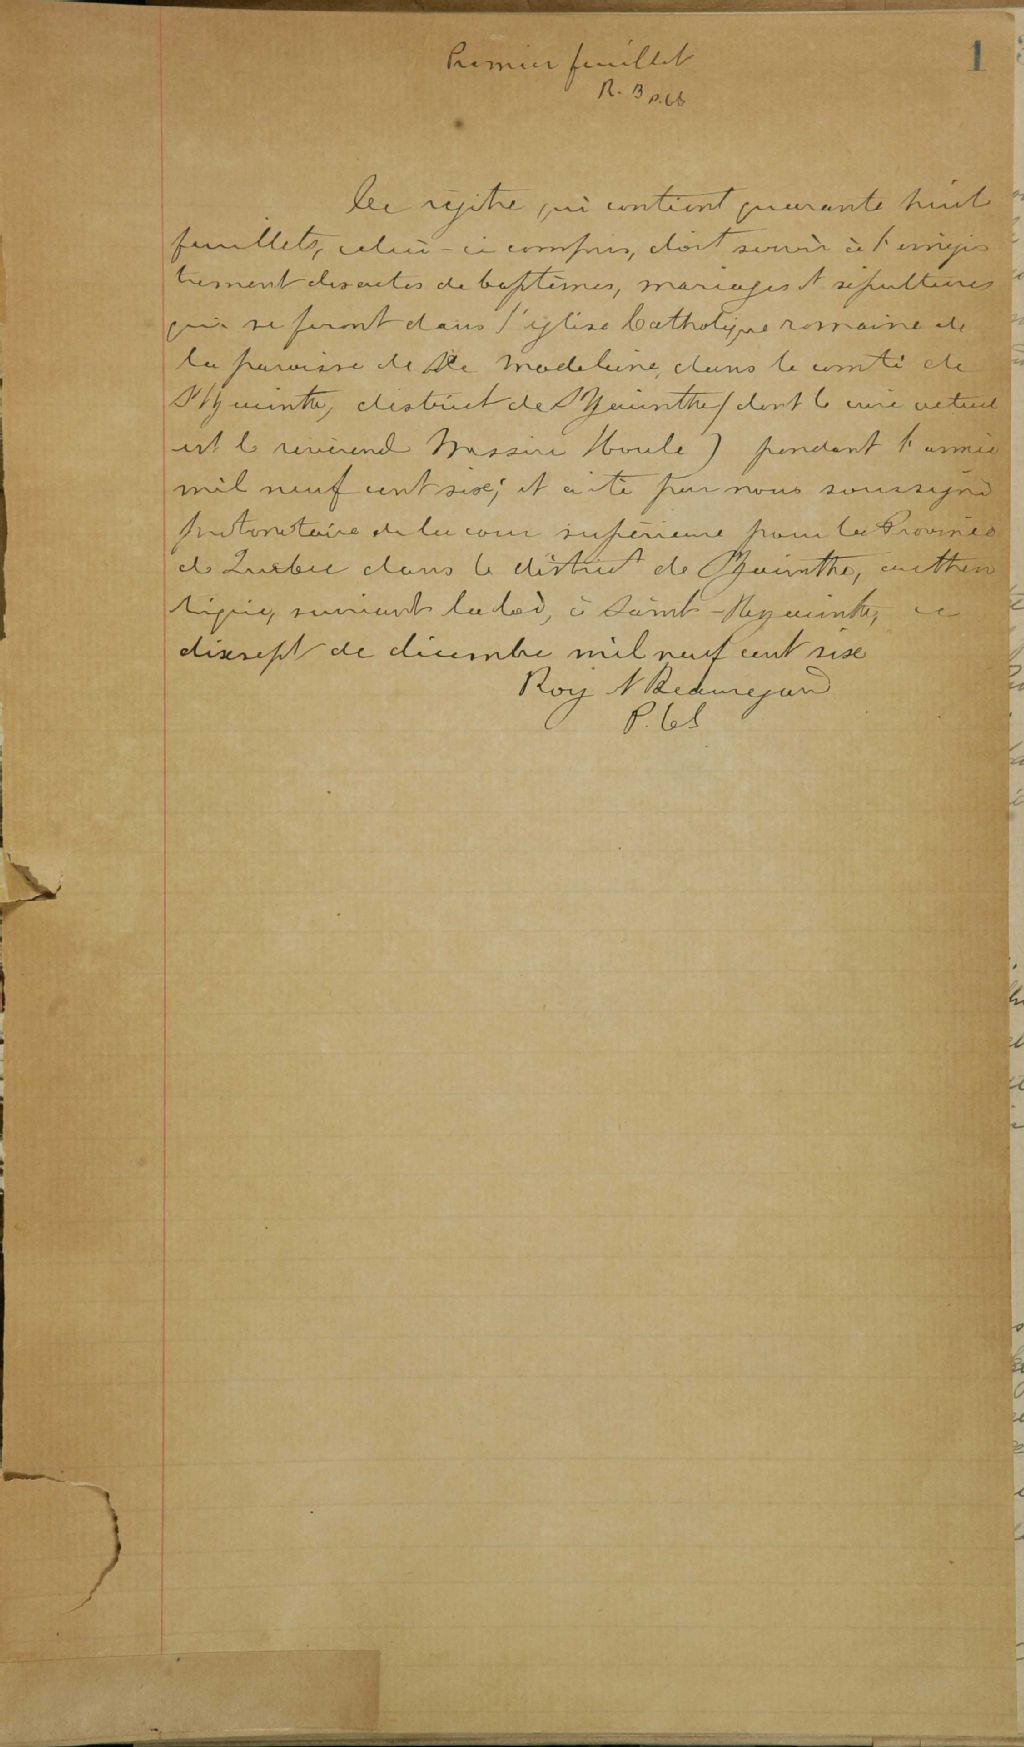 Premier feuillet
1
R. B P.C.S
Ce régitre qui contient quarante huit
feuillets, celui-ci compris, doit servir à l'enrégis
trement des actes de baptêmes, mariages et sépultures
qui se feront dans l'église Catholique romaine de
la paroisse de Ste Madeleine, dans le comté de
St Hyacinthe, district de St Hyacinthe (dont le curé actuel
est le révérend Messire Houle) pendant l'année
mil neuf cent six; et a été par nous soussigné
protonotaire de la cour supérieure pour la Province
de Québec dans le district de St Hyacinthe, authen
tiqué, suivant la loi, à Saint-Hyacinthe, ce
dixsept de décembre mil neuf cent six
Roy & Beauregard
P.C.S